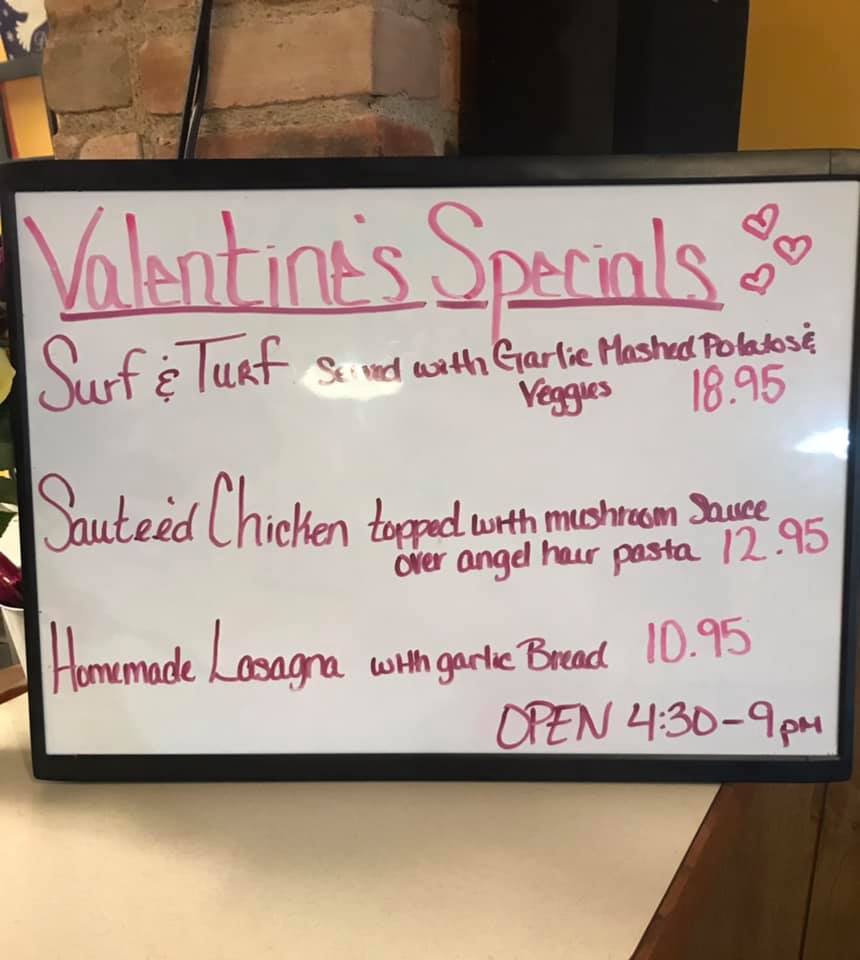 Valentine's Specials
Surf & Turf Served with Garlic Mashed Potatos &
Veggies 18.95
Sauteéd Chicken topped with mushroom Sauce
over angel hair pasta 12.95
Homemade Lasagna with garlic Bread 10.95
OPEN 4:30-9pm